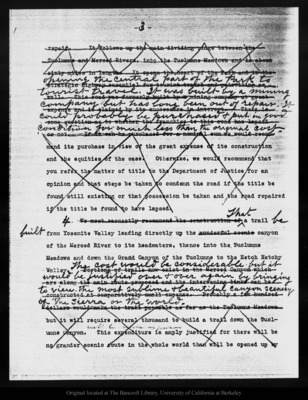 -3-
repair. It follows up the main dividing ridge between the
Tuolumne and Merced Rivers, into the Tuolumne Meadows and is about
opening the central part of the Park to
tourist travel. It was built by a mining
company but has long been out of repair. It
could probably be purchased & put in good
condition for much less than the original cost.
mend its purchase in view of the great expense of its construction
and the equities of the case. Otherwise, we would recommend that
you refer the matter of title to the Department of Justice for an
opinion and that steps be taken to condemn the road if the title be
found still existing or that possession be taken and the road repaired
if the title be found to have lapsed.
4. We most earnestly recommend the construction of a That trail be
built from Yosemite Valley leading directly up the wonderful canyon
of the Merced River to its headwaters, thence into the Tuolumne
Meadows and down the Grand Canyon of the Tuolumne to the Hetch Hetchy
Valley. The cost would be considerable, but it
would be justified over & over again by bringing
to view the most sublime & beautiful canyon scenery
of the Sierra or the world.
but it will require several thousand to build a trail down the Tuol-
umne Canyon. This expenditure is amply justified for there will be
no grander scenic route in the whole world than will be opened up by
Original located at The Bancroft Library, University of California at Berkeley